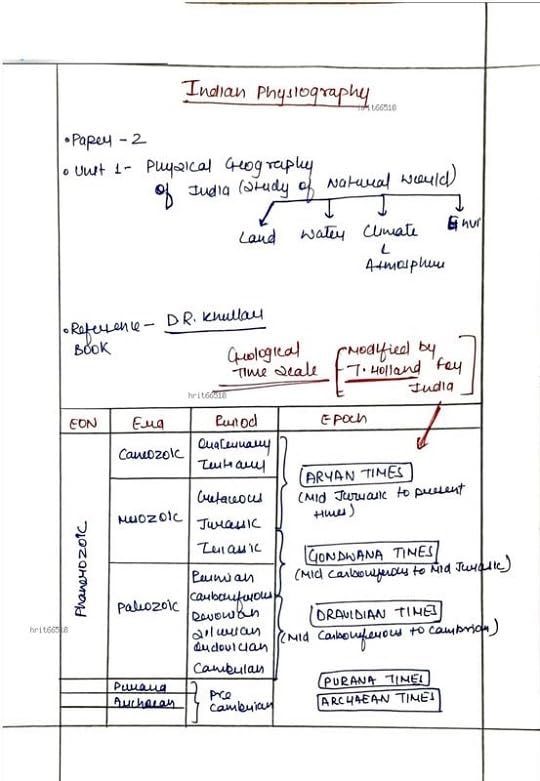 Indian Physiography
hrit66518
• Paper - 2
• Unit 1 - Physical Geography
of India (Study of Natural World)
Land Water Climate Envr
Atmosphere
• Reference - D.R. Khullar
BOOK
Geological
Time Scale
[Modified by
T. Holland for
India]
hrit66518
EON Era Period EPOCH
Phanerozoic
Canozoic
Quaternary
Tertiary
ARYAN TIMES
(Mid Jurassic to present
times)
Mesozoic
Cretaceous
Jurassic
Triassic
GONDWANA TIMES
(Mid Carboniferous to Mid Jurassic)
Paleozoic
Permian
Carboniferous
Devonian
Silurian
Ordovician
Cambrian
DRAVIDIAN TIMES
(Mid Carboniferous to Cambrian)
hrit66518
Purana
Archaean
Pre
Cambrian
PURANA TIMES
ARCHAEAN TIMES